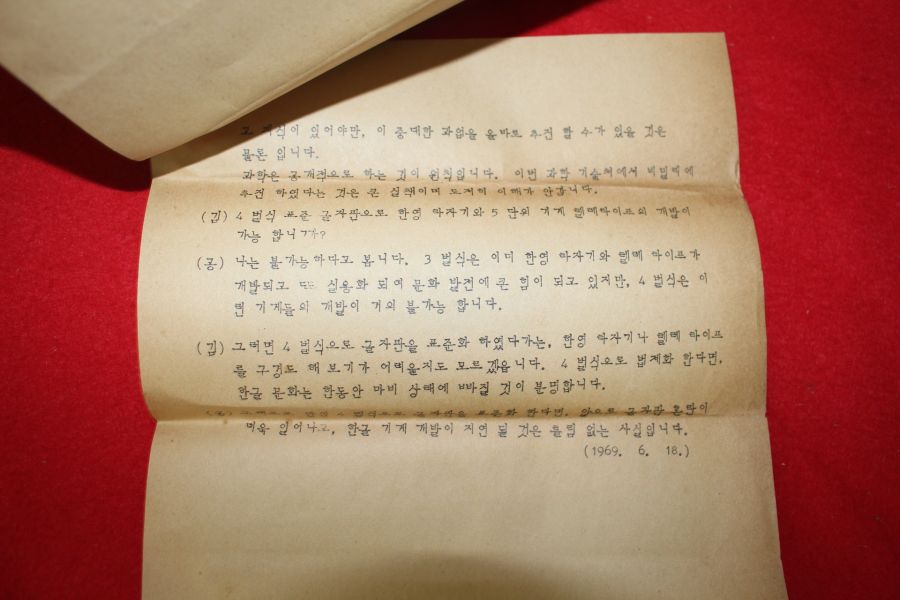 고 지식이 있어야만, 이 중대한 과업을 올바로 추진 할 수가 있을 것은
물론 입니다.
과학은 공개적으로 하는 것이 원칙입니다. 이번 과학 기술처에서 비밀리에
추진 하였다는 것은 큰 실책이며 도저히 이해가 안갑니다.
(김) 4 벌식 표준 글자판으로 한영 타자기와 5 단위 기계 텔레타이프의 개발이
가능 합니까?
(공) 나는 불가능하다고 봅니다. 3 벌식은 이미 한영 타자기와 텔레 타이프가
개발되고 또는 실용화 되여 문화 발전에 큰 힘이 되고 있지만, 4 벌식은 이
런 기계들의 개발이 거의 불가능 합니다.
(김) 그러면 4 벌식으로 글자판을 표준화 하였다가는, 한영 타자기나 텔레 타이프
를 구경도 해 보기가 어려울지도 모르겠읍니다. 4 벌식으로 법제화 한다면,
한글 문화는 한동안 마비 상태에 빠질 것이 분명합니다.
4 벌식으로 글자판을 표준화 한다면, 앞으로 글자판 혼란이
더욱 일어나고, 한글 기계 개발이 지연 될 것은 틀림 없는 사실입니다.
(1969. 6. 18.)